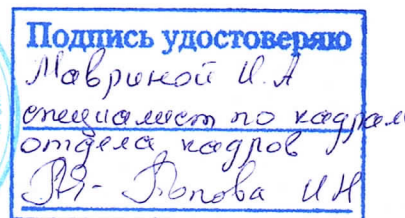 Подпись удостоверяю
Мавриной И.А
специалист по кадрам
отдела кадров
Попова И Н